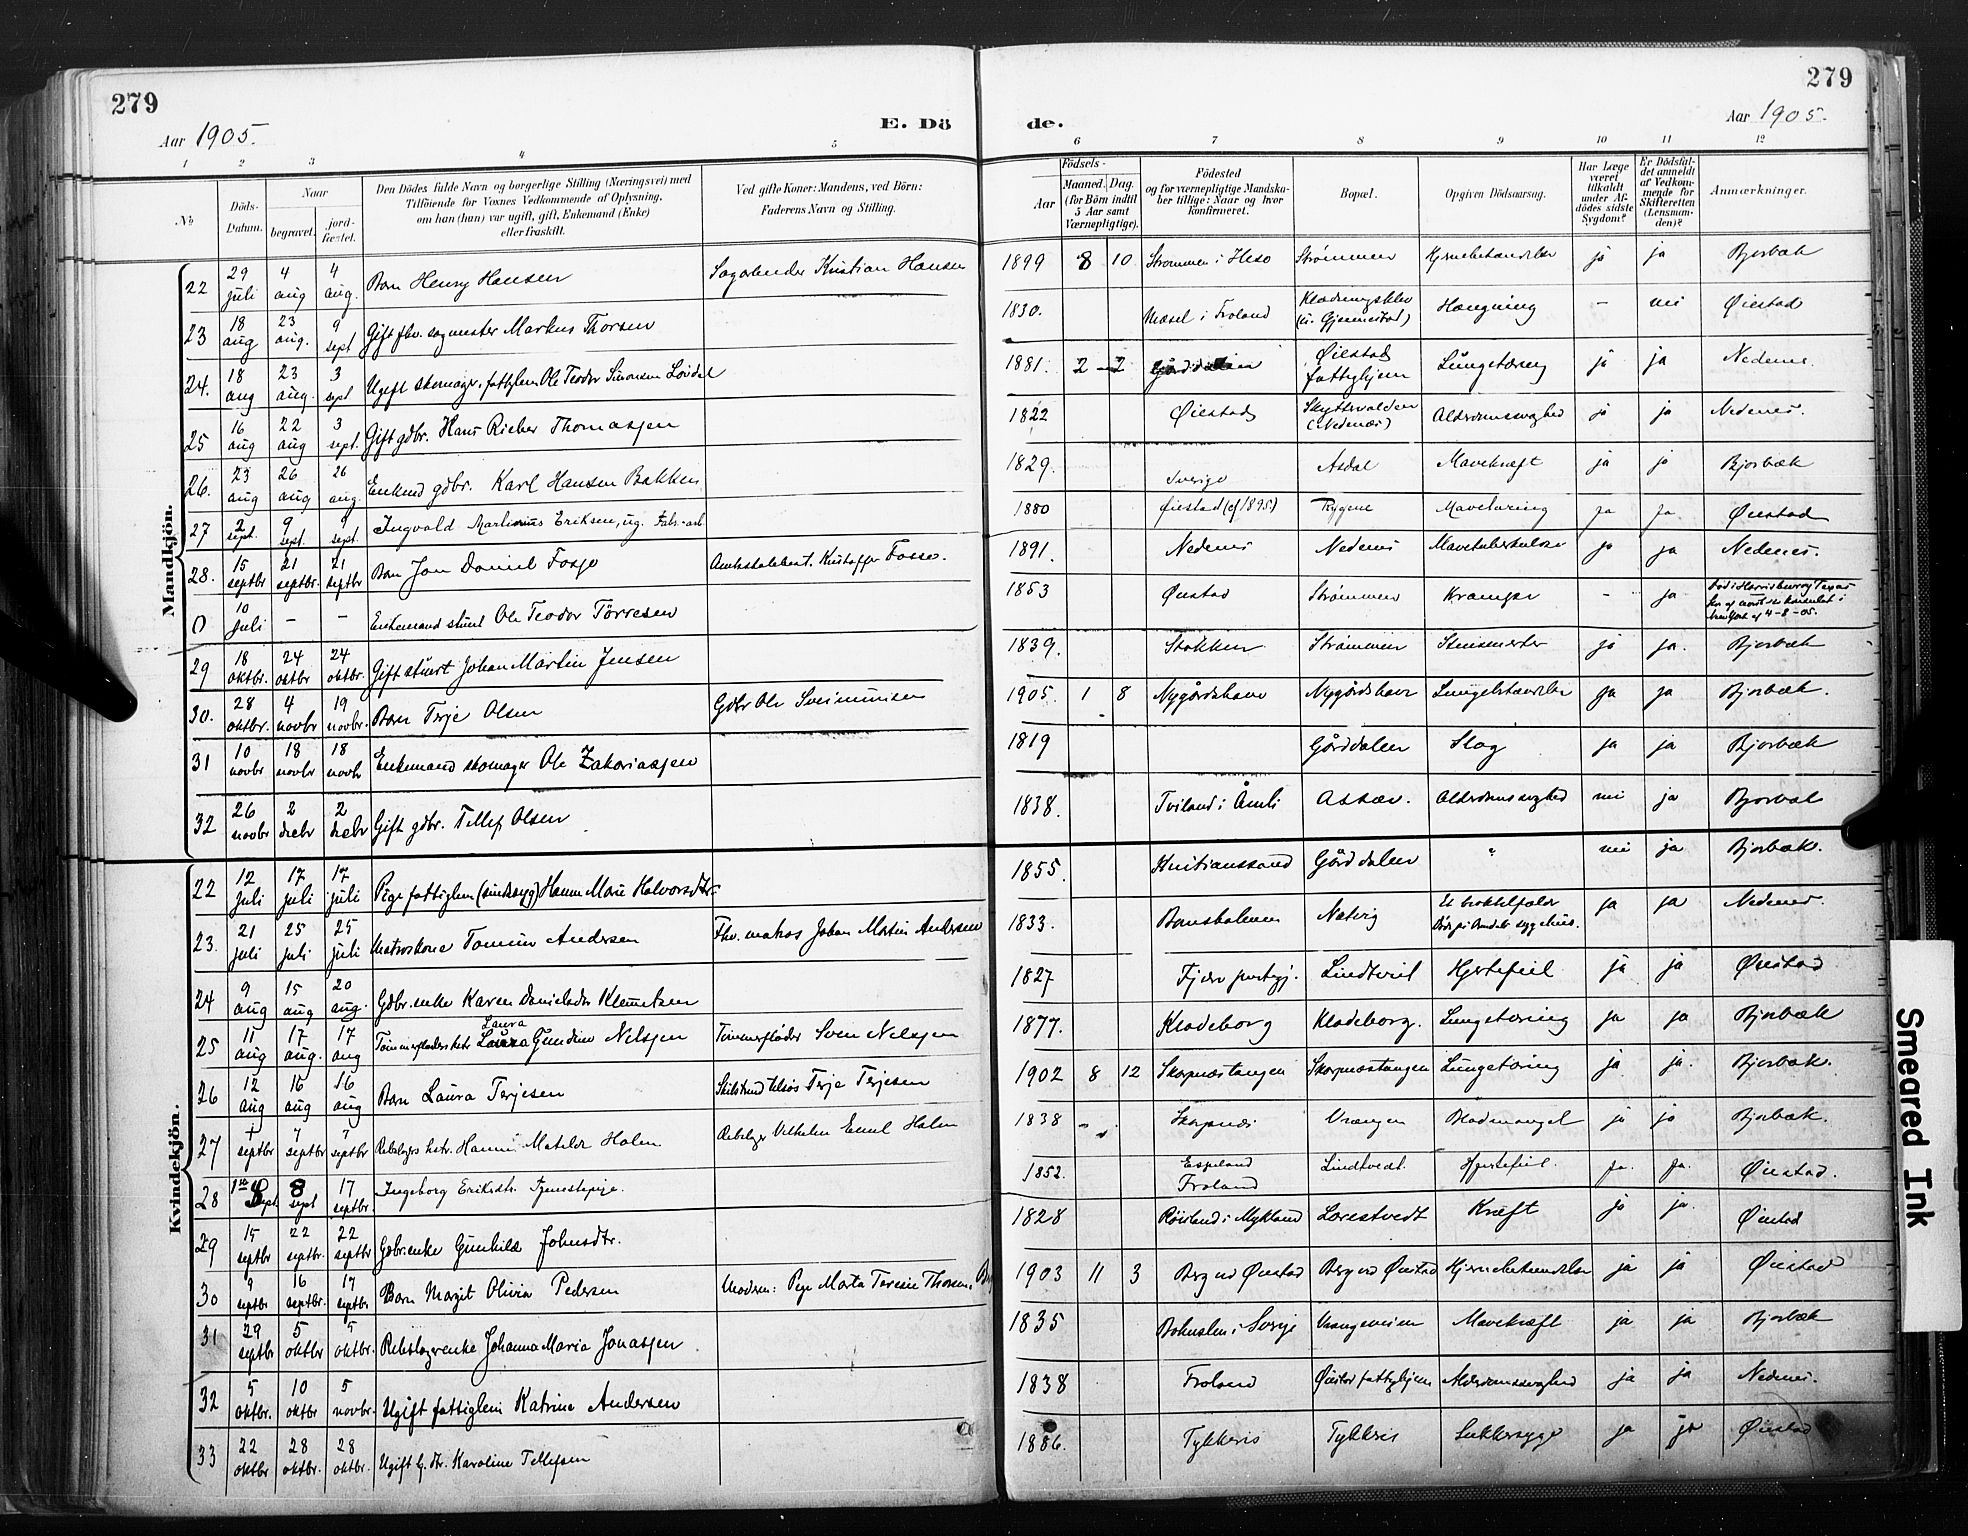 279
279
Aar 1905.
E. Dö
de.
Aar 1905.
1 2 3 4 5 6 7 8 9 10 11 12
No
Döds-Datum.
Naar
begravet.
jord-fæstet.
Den Dödes fulde Navn og borgerlige Stilling (Næringsvei) med
Tilföiende for Voxnes Vedkommende af Oplysning,
om han (hun) var ugift, gift, Enkemand (Enke)
eller fraskilt.
Ved gifte Koner: Mandens, ved Börn:
Faderens Navn og Stilling.
Födsels-
Aar
Maaned. Dag.
(for Börn indtil
5 Aar samt
Værnepligtige).
Födested
og for værnepligtige Mandska-
ber tillige: Naar og hvor
konfirmeret.
Bopæl.
Opgiven Dödsaarsag.
Har Læge
været
tilkaldt
under Af-
dödes sidste
Sygdom?
Er Dödsfal-
det anmeldt
af Vedkom-
mende for
Skifteretten
(Lensman-
den)?
Anmærkninger.
Mandkjön.
22 29 juli 4 aug 4 aug. Barn Henry Hansen Kristian Hansen 1899 8 10 Strømmen i Hisø Strømmen ja ja Bjorbæk
23 18 aug 23 aug. 9 sept Gift fhv. sagmester Markus Thorsen 1830. Mæsel i Froland Hængning – nei Øiestad
24. 18 aug 23 aug. 3 sept Ugift skomager, fattiglem Ole Teodor Simonsen 1881. 2 2 Øiestad fattighjem Lungetæring ja ja Nedenes
25 16 aug 22 aug 3 sept. Gift gdbr. Hans Rieber Thomassen 1822 Øiestad (Nedenæs) Alderdomssvaghed ja ja Nedenes.
26. 23 aug 26 aug 26 aug. Enkemd gdbr. Karl Hansen Bakken 1829. Sverige Asdal Mavekræft ja ja Bjorbæk
27 2 sept. 9 sept. 9 sept. Ingvald Martinius Eriksen, ug. Fabr.-arb 1880 Øiestad (cf 1895) Rygene Mavetæring ja ja Øiestad
28. 15 septbr 21 septbr. 21 septbr Barn Jon Daniel Fosse Kristoffer Fosse. 1891. Nedenes Nedenes Mavetuberkulose ja ja Nedenes.
0 10 juli – – Enkemand stuert Ole Teodor Tørresen 1853 Øiestad Strømmen Krampe – ja død i Harrisburg Texas
New York af 4-8-05.
29 18 oktbr. 24 oktbr 24 oktbr. Gift stuert Johan Martin Jensen 1839. Stokken Strømmen ja ja. Bjorbæk
30. 28 oktbr. 4 novbr 19 novbr. Barn Terje Olsen Gdbr Ole 1905. 1 8 Nygårdshave Nygårdshave Lungebetændelse ja ja Bjorbæk.
31 10 novbr 18 novbr 18 novbr Enkemand skomager Ole Zakariassen 1819 Gårddalen Slag ja ja Bjorbæk
32 26 novbr 2 decbr 2 decbr Gift gdbr. Tellef Olsen 1838. Tviland i Åmli Alderdomssvaghed nei ja Bjorbæk
Kvindekjön.
22 12 juli 17 juli 17 juli Pige fattiglem (sindssyg) Hanne Marie Halvorsdtr. 1855. Kristianssand Gårddalen nei ja Bjorbæk.
23. 21 juli 25 juli 25 juli Matroskone Tomine Andersen Fhv. matros Johan Martin Andersen 1833. Natvig Et broktilfælde
Død på Arendals sygehus. ja ja Nedenes
24 9 aug 15 aug 20 aug. Gdbr.enke Karen Danielsdtr Klemetsen 1827 Fjære prestegj. Lindtveit Hjertefeil ja ja Øiestad
Laura
25 11 aug 17 aug. 17 aug Tømmerfløders hstr Gundine Nelsjen Tømmerfløder Sven Nelsjen 1877. Kladeborg Kladeborg. Lungetæring ja ja Bjorbæk
26 12 aug 16 aug 16 aug Barn Laura Terjesen Terje Terjesen 1902 8 12 Skarpnæstangen Skarpnæstangen Lungetæring ja ja. Bjorbæk.
27 septbr 7 septbr 7 septbr Rebslagers hstr. Hanne Matilde Holm Rebslager Vilhelm Emil Holm 1838 Skarpnæs Vrængen Blodmangel ja ja Bjorbæk.
28 sept. 8 sept 17 septbr. Ingeborg Eriksdtr. Tjenestepige. 1852. Espeland
Froland Lindtvedt. Hjertefeil. ja. ja. Øiestad.
29 15 septbr 22 septbr. 22 septbr Gdbr.enke Gunhild Johnsdtr. 1828 Røisland i Mykland Lorestvedt Kræft ja ja. Øiestad
30 9 septbr 16 septbr. 17 septbr Barn Margit Olivia Pedersen Moderen: Pige Marta Teresie Thorsen, 1903 11 3 Berg ved Øiestad Berg ved Øiestad Hjernebetændelse ja ja Øiestad
31 29 septbr 5 oktbr 5 oktbr. Rebslagerenke Johanna Maria Jonassen 1835 Bohuslen i Sverige Mavekræft ja ja Bjorbæk
32 5 oktbr. 10 oktbr 5 novbr. Ugift fattiglem Katrine Andersen 1838 Froland Øiestad fattighjem Alderdomssvaghed ja ja Nedenes.
33 22 oktbr. 28 oktbr. 28 oktbr. Ugift G. dtr. Karoline Tellefsen 1886. Tykkeris Tykkeris Sukkersyge ja ja Øiestad
Smeared Ink